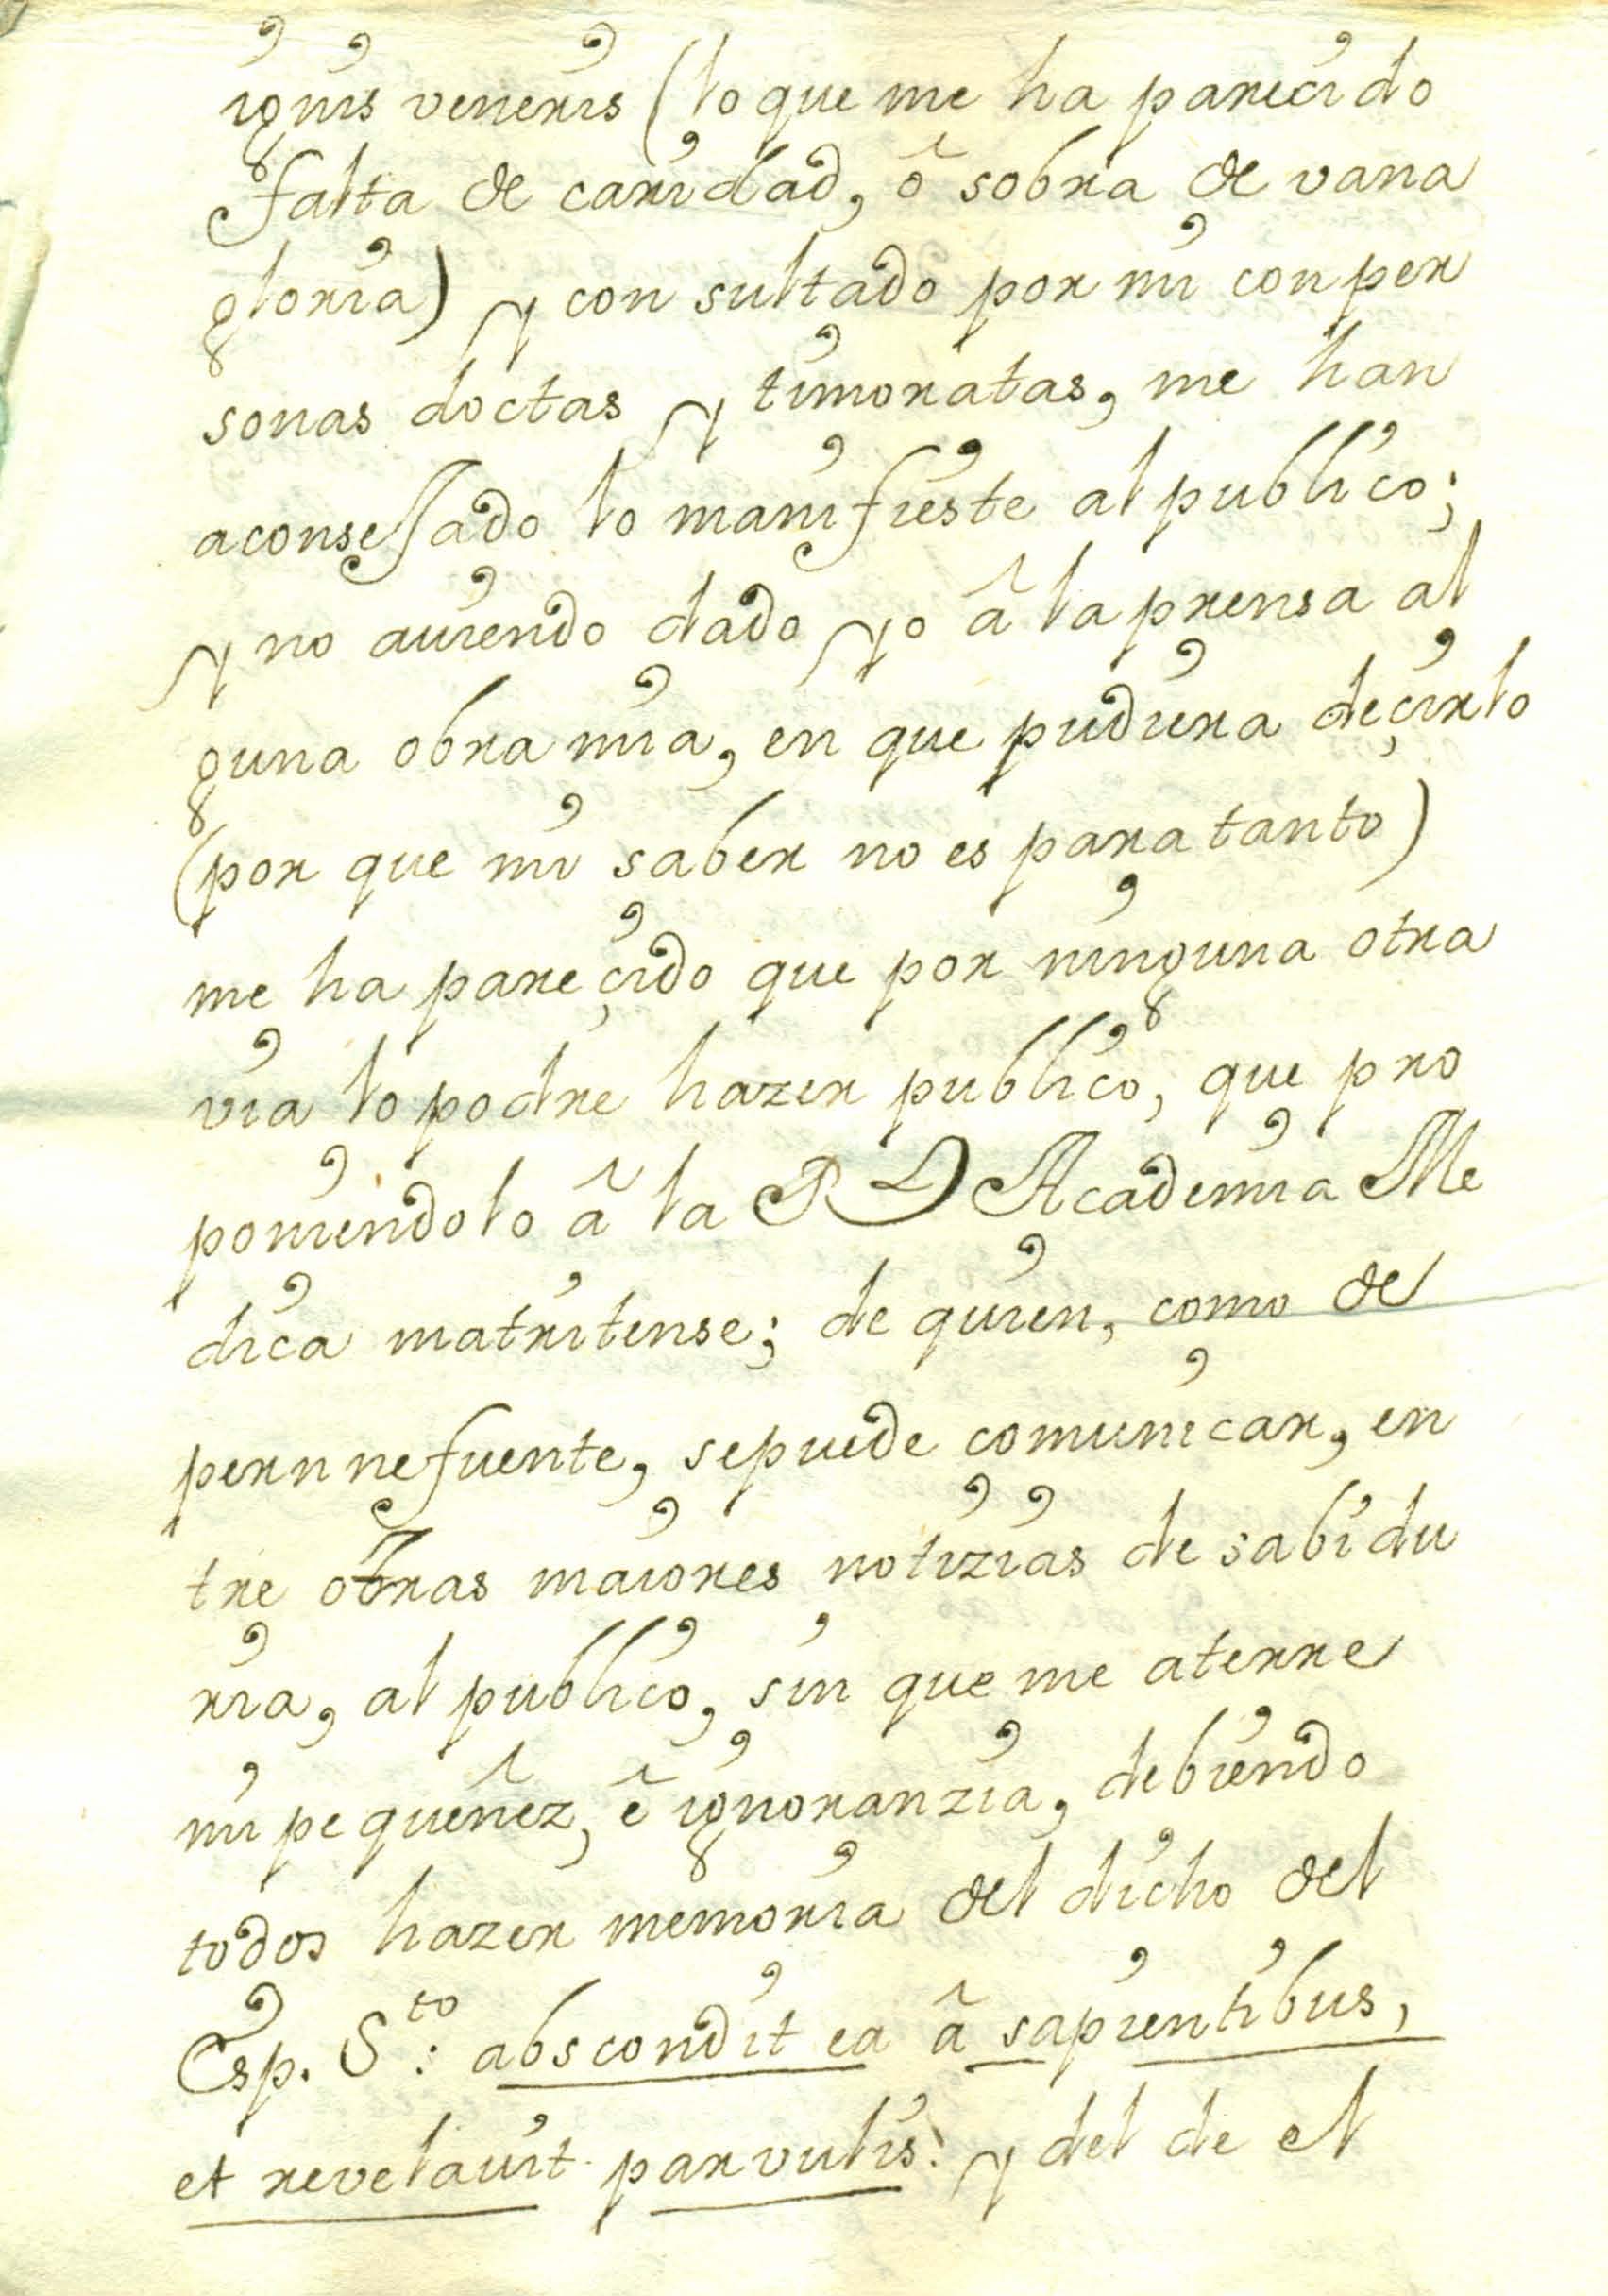 ignis veneris (lo que me ha parecido
falta de caridad, ô sobra de vana
gloria) y con sultado por mi con per
sonas doctas y timoratas, me han
aconsejado lo manifieste al publico;
y no auiendo dado yo â la prensa al
guna obra mia, en que pudiera deçirlo
(por que mi saber no es para tanto)
me ha pareçido que por ninguna otra
via lo podre hazer publico, que pro
poniendolo â la Rl Academia Me
dica matritense; de quien, como de
pernne fuente, se puede comunicar, en
tre obras maiores notizias de sabidu
ria, al publico, sin que me aterre
mi pequeñez, ê ignoranzia, debiendo
todos hazer memoria del dicho del
Esp. Sto: abscondit ea â sapientibus,
et revelauit parvulis: y del de el